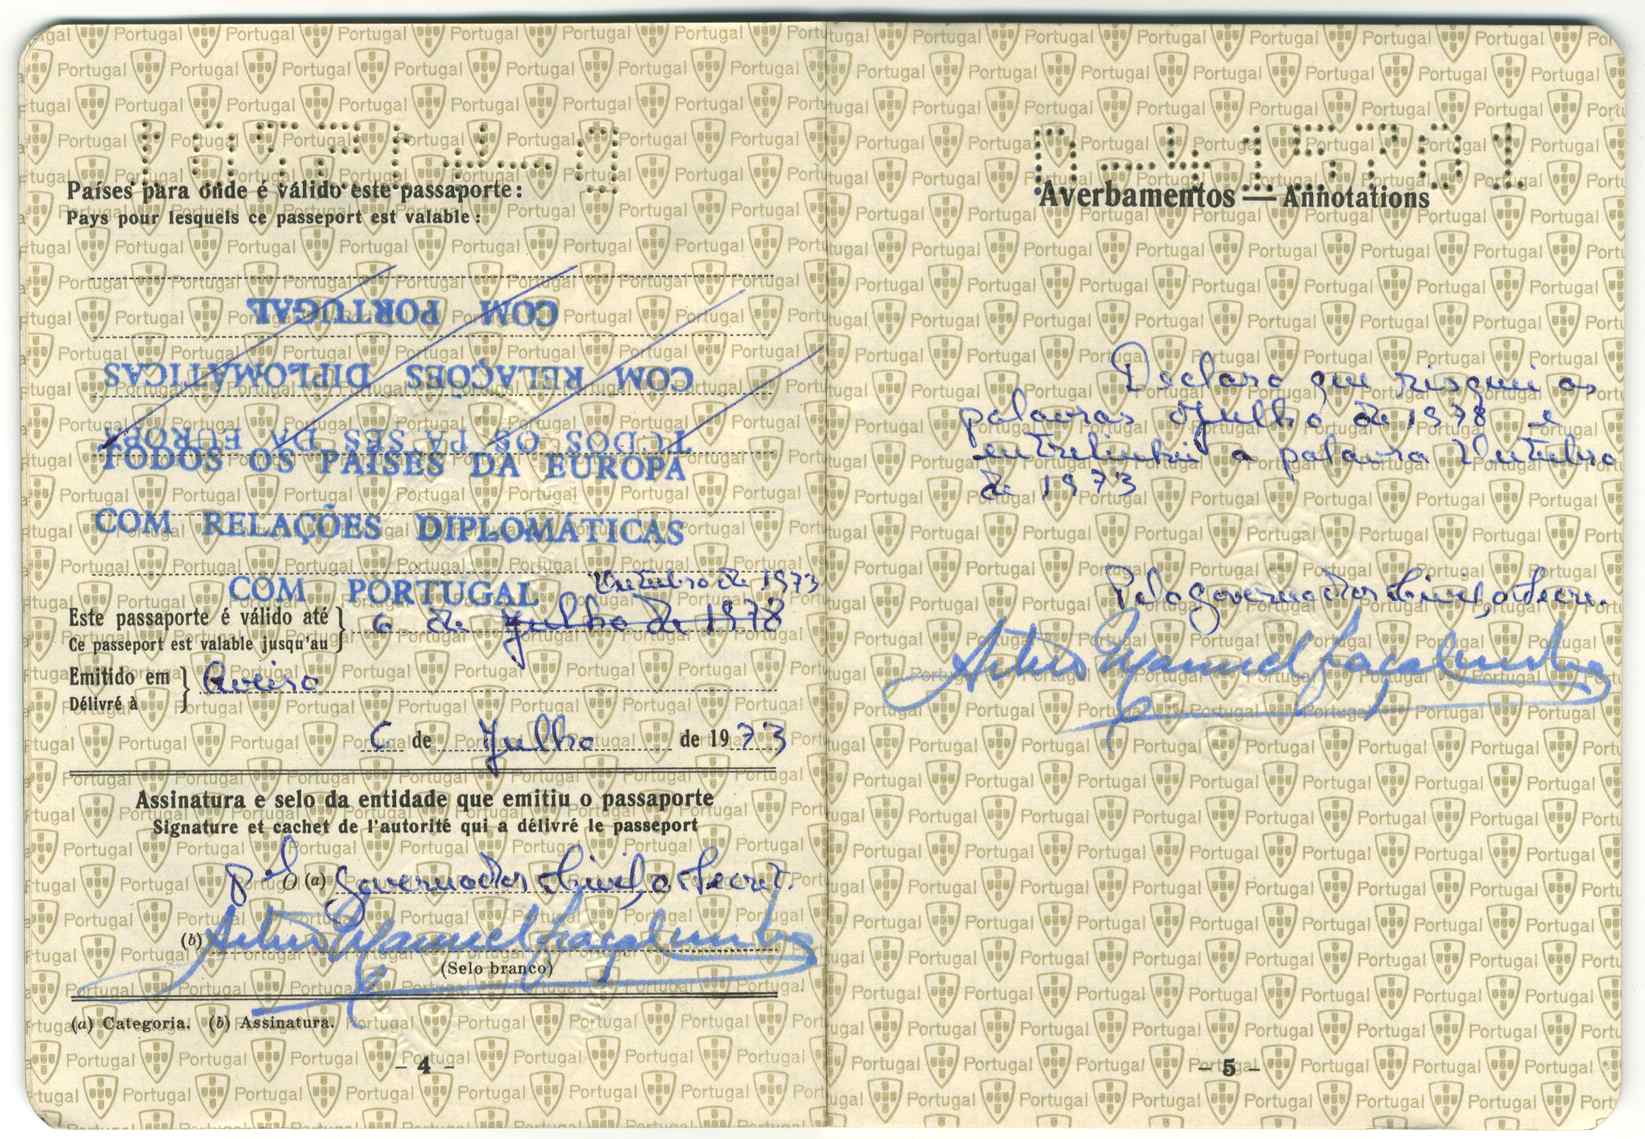 Países para onde é válido este passaporte:
Pays pour lesquels ce passeport est valable:
COM PORTUGAL
COM RELAÇÕES DIPLOMÁTICAS
TODOS OS PAÍSES DA EUROPA
TODOS OS PAÍSES DA EUROPA
COM RELAÇÕES DIPLOMÁTICAS
COM PORTUGAL
Outubro de 1973
Este passaporte é válido até } 6 de Julho de 1978
Ce passeport est valable jusqu'au
Emitido em } Aveiro
Délivré à
6 de Julho de 1973
Assinatura e selo da entidade que emitiu o passaporte
Signature et cachet de l'autorité qui a délivré le passeport
O (a) Governador Civil, o Secret.
(b) Artur Manuel
(Selo branco)
(a) Categoria. (b) Assinatura.
- 4 -
0-415701
Averbamentos — Annotations
Declaro que risquei as
palavras Julho de 1978 e
entrelinhei a palavra Outubro
de 1973
Pelo Governador Civil, o Secre.
Artur Manuel
- 5 -